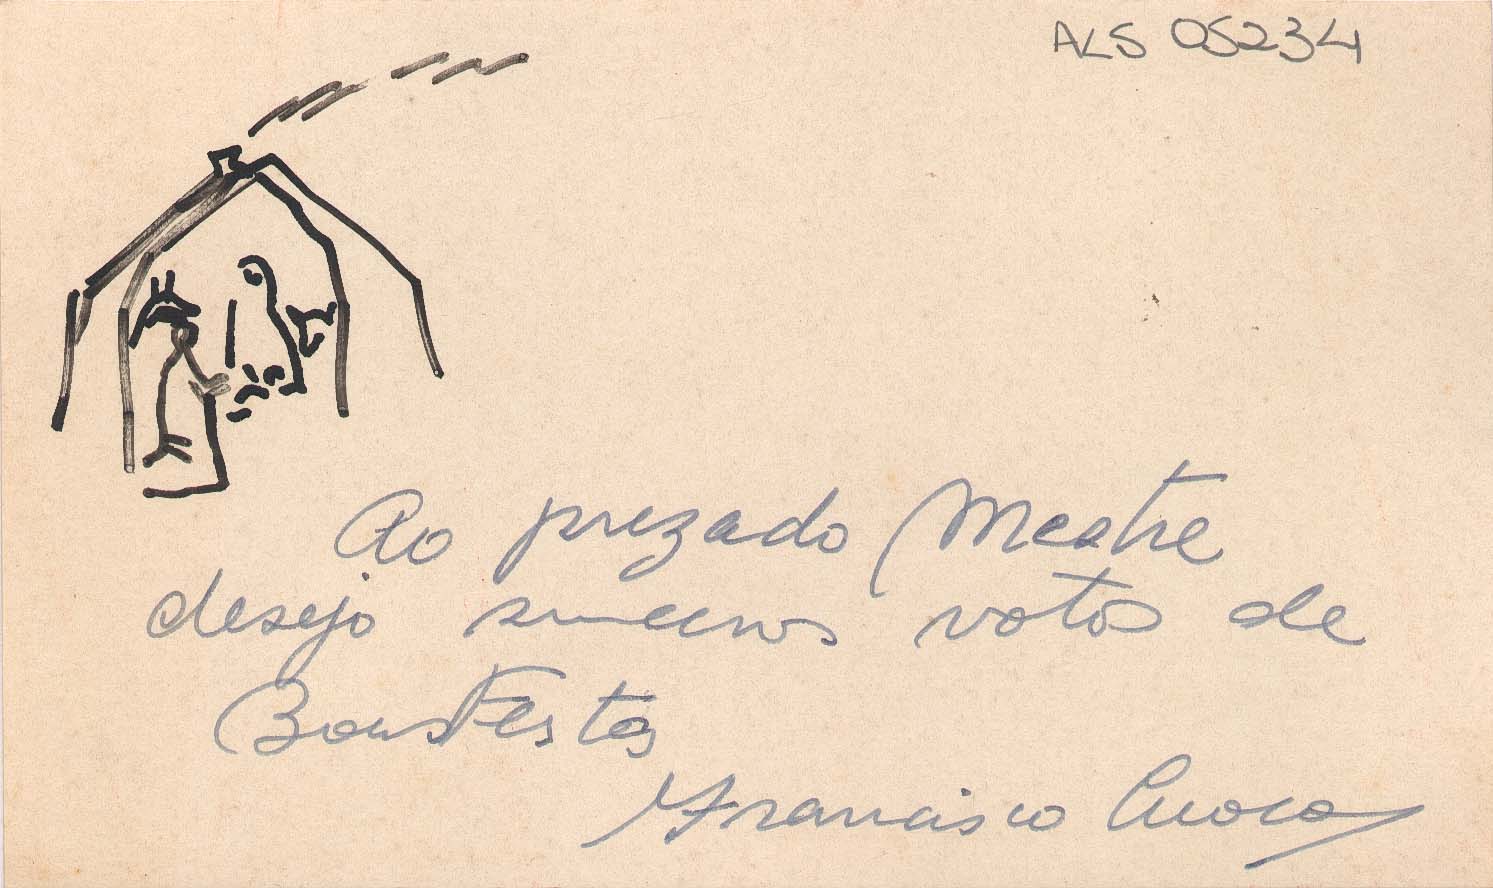 ALS 05234
Ao prezado Mestre
desejo sinceros votos de
Boas Festas
Francisco Cuoco